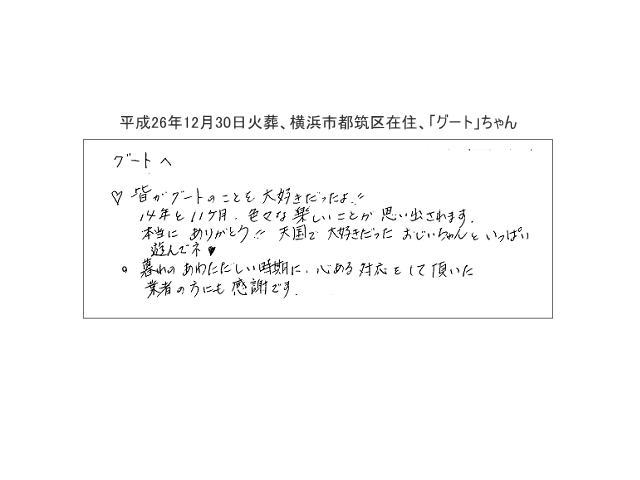 平成26年12月30日火葬、横浜市都筑区在住、「グート」ちゃん
グートへ
♡ 皆がグートのことを大好きだったよ!!
14年と11ケ月、色々な楽しいことが思い出されます。
本当にありがとう!! 天国で大好きだったおじいちゃんといっぱい
遊んでネ♥
○ 暮れのあわただしい時期に、心ある対応をして頂いた
業者の方にも感謝です。